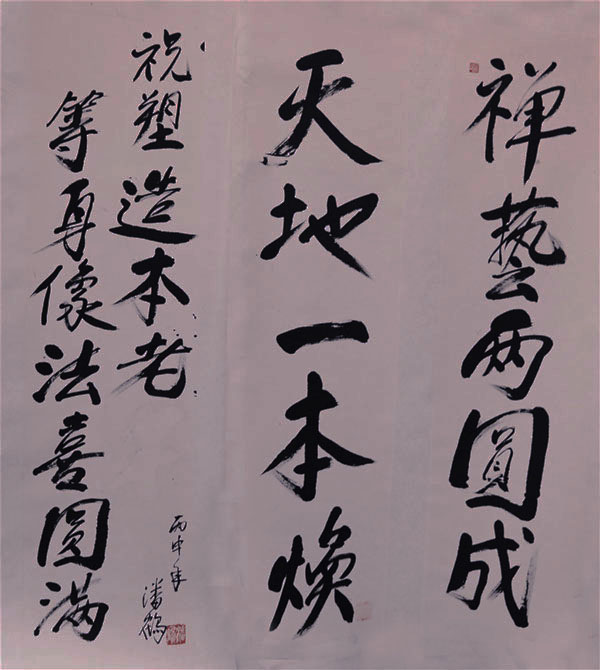 禅藝两圆成
天地一本焕
祝塑造本老
等身像法喜圆满
丙申年
潘鹤